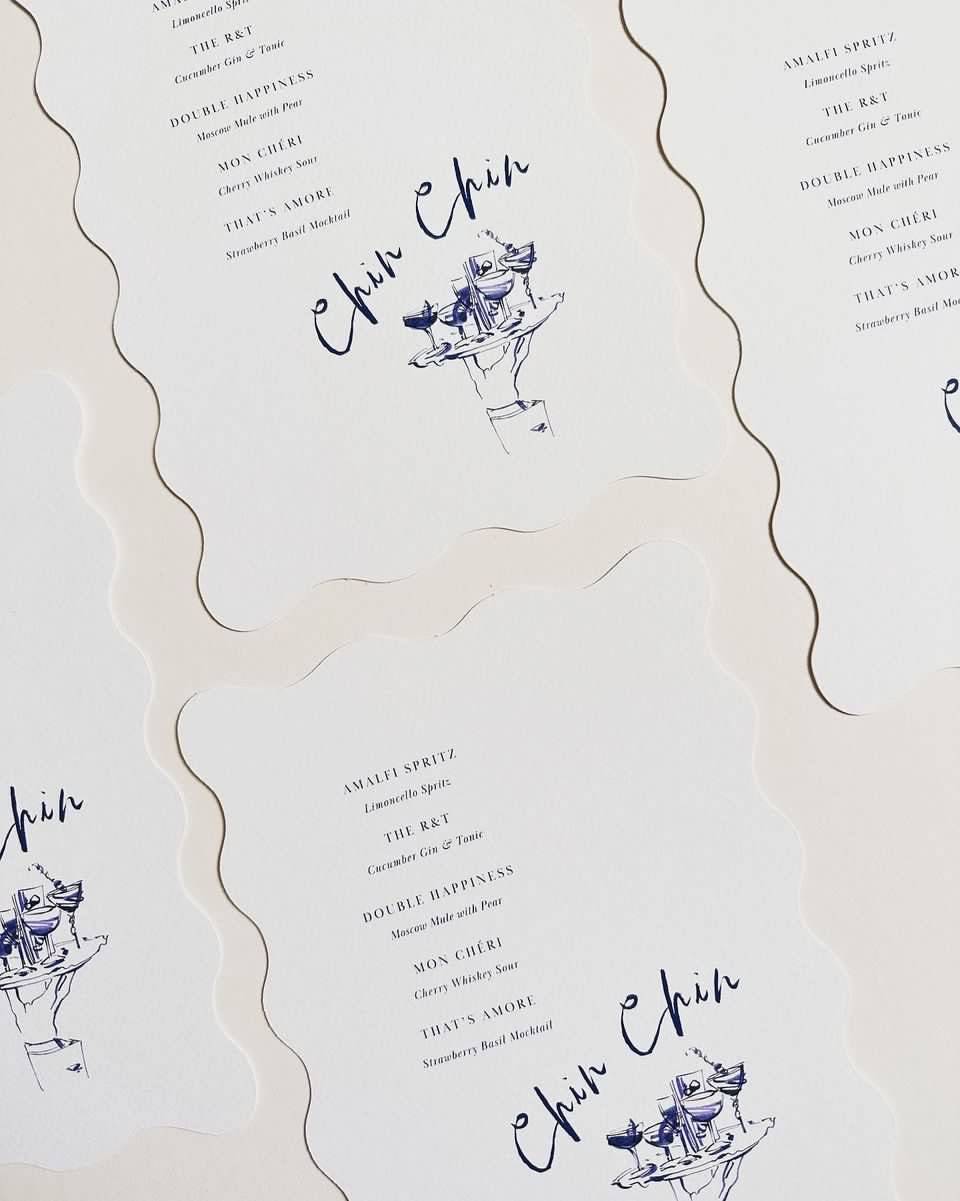 THE R&T
Cucumber Gin & Tonic
DOUBLE HAPPINESS
Moscow Mule with Pear
MON CHÉRI
Cherry Whiskey Sour
THAT'S AMORE
Strawberry Basil Mocktail
Chin Chin
AMALFI SPRITZ
Limoncello Spritz
THE R&T
Cucumber Gin & Tonic
DOUBLE HAPPINESS
Moscow Mule with Pear
MON CHÉRI
Cherry Whiskey Sour
THAT'S
Strawberry Basil
AMALFI SPRITZ
Limoncello Spritz
THE R&T
Cucumber Gin & Tonic
DOUBLE HAPPINESS
Moscow Mule with Pear
MON CHÉRI
Cherry Whiskey Sour
THAT'S AMORE
Strawberry Basil Mocktail
Chin Chin